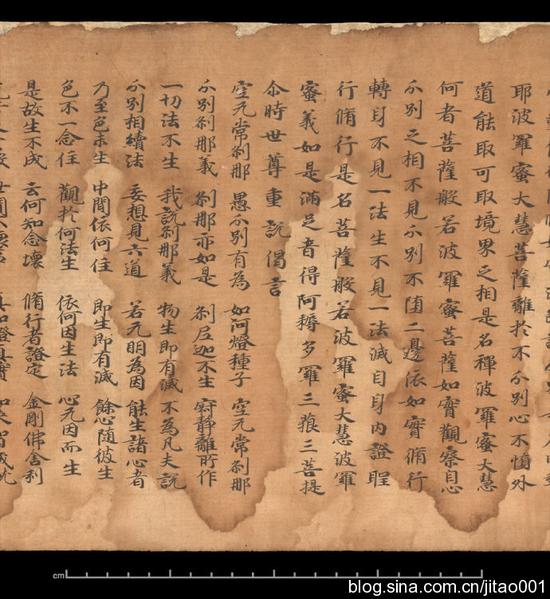 耶波羅蜜大慧菩薩離於分別心不隨外
道能取可取境界之相是名禪波羅蜜大慧
何者菩薩般若波羅蜜菩薩如實觀察自心
分別之相不見分別不墮二邊依如實脩行
轉身不見一法生不見一法滅自身内證聖
行脩行是名菩薩般若波羅蜜大慧波羅
蜜義如是滿足者得阿耨多羅三藐三菩提
尒時世尊重說偈言
空无常剎那 愚分別有為 如河燈種子 空无常剎那
分別剎那義 剎那亦如是 剎尼迦不生 寂靜離所作
一切法不生 我說剎那義 物生即有滅 不為凡夫說
分別相續法 妄想見六道 若无明為因 能生諸心者
乃至色未生 中間依何住 即生即有滅 餘心隨彼生
色不一念住 觀於何法生 依何因生法 心无因而生
是故生不成 云何知念壞 脩行者證定 金剛佛舍利
cm
blog.sina.com.cn/jitao001